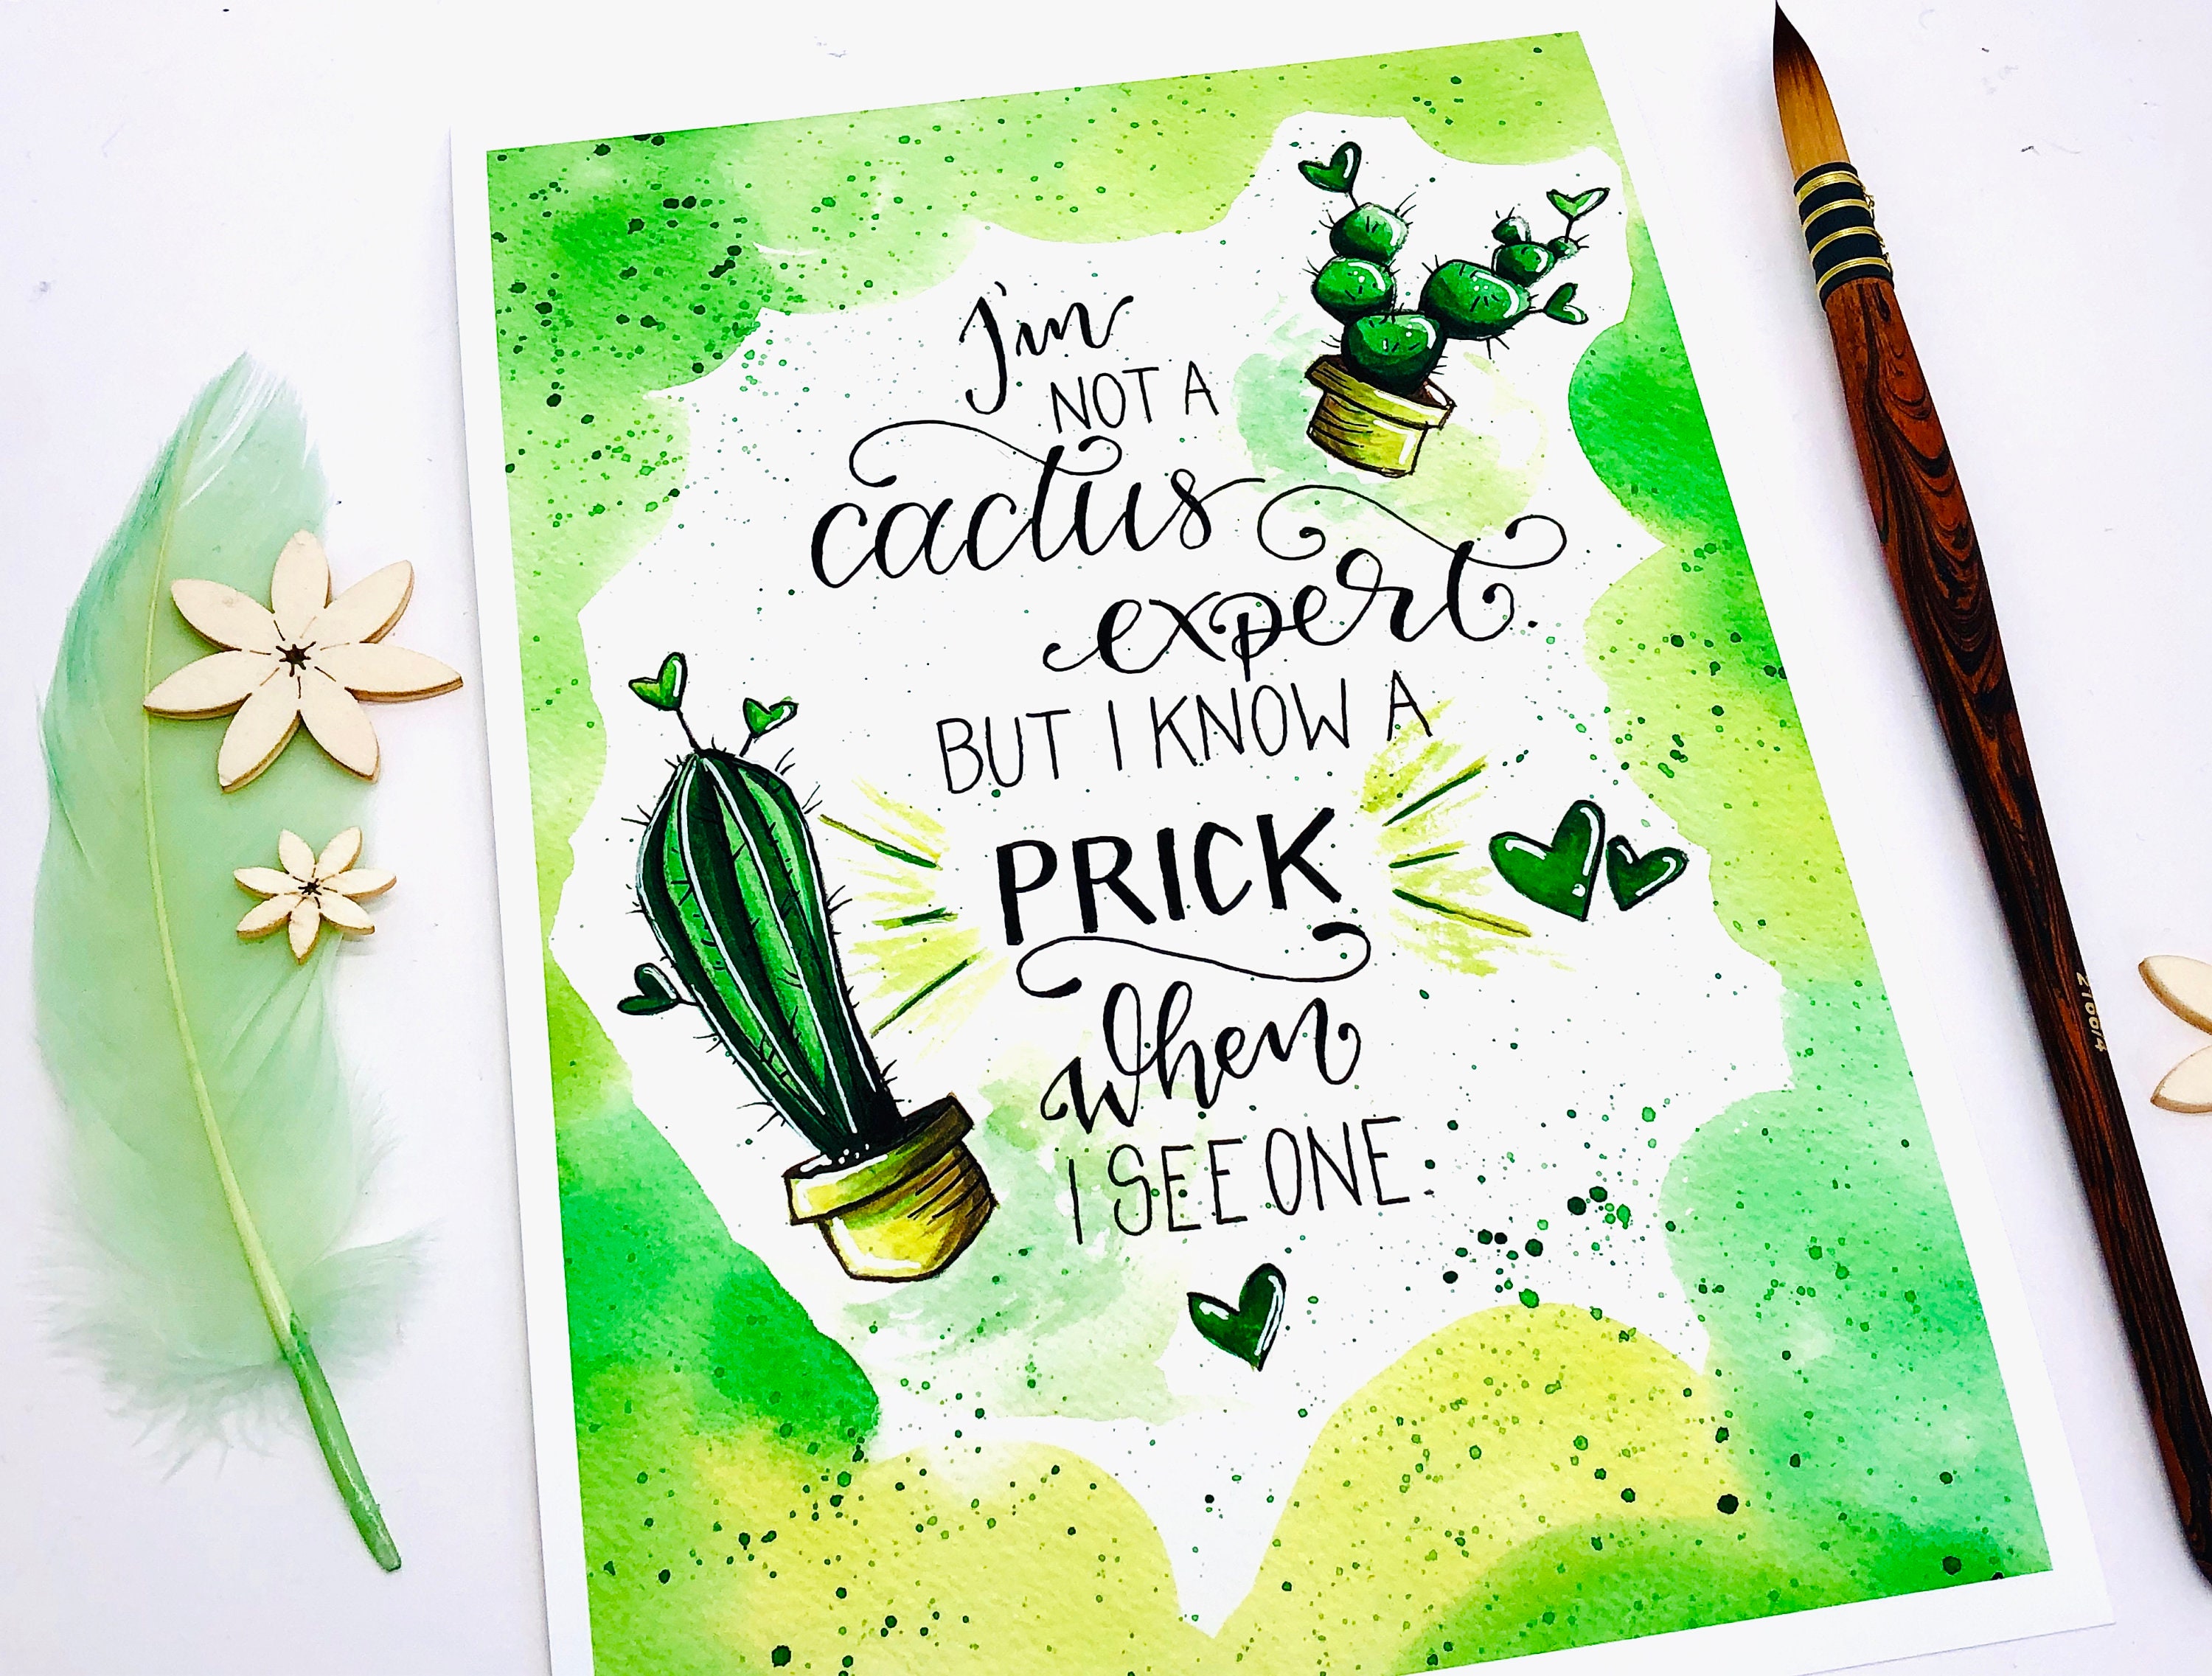 I'm
NOT A
cactus
expert.
BUT I KNOW A
PRICK
when
I SEE ONE.
2166/4